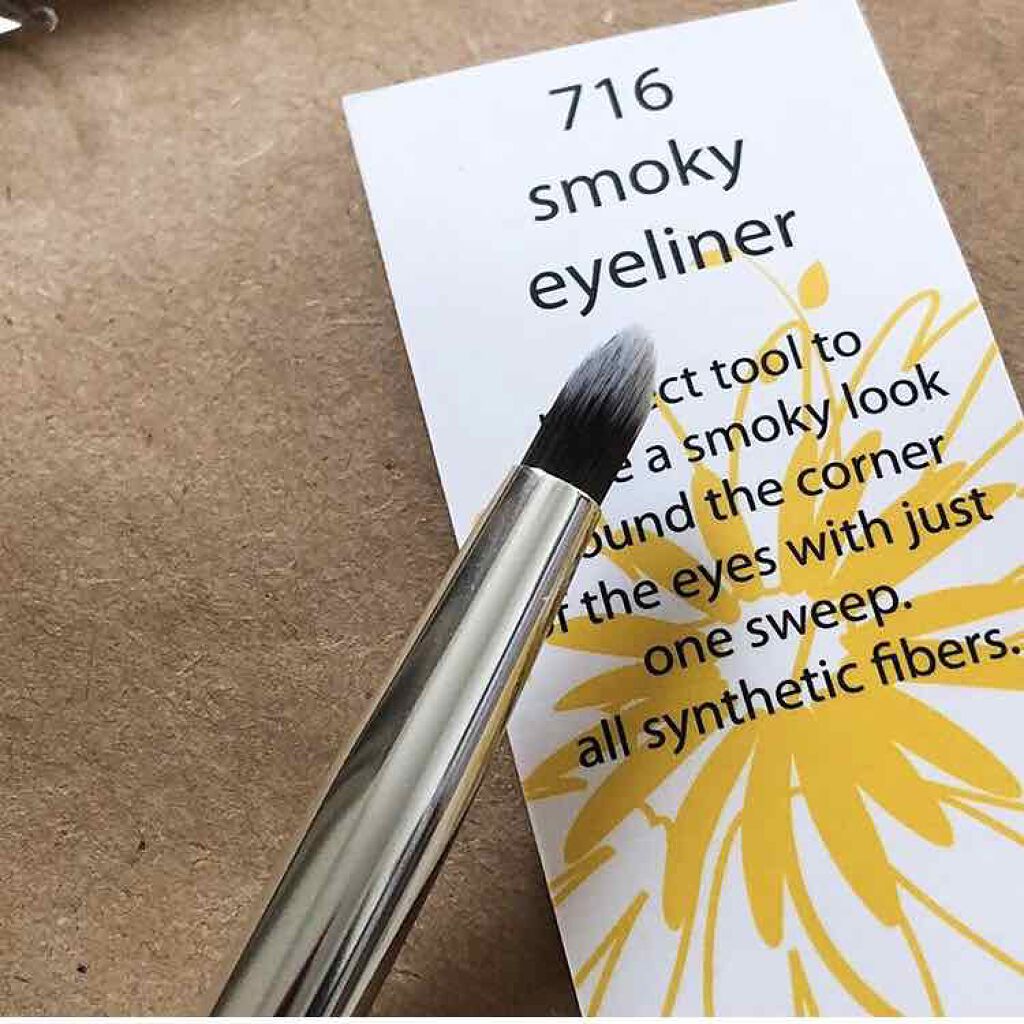 716
smoky
eyeliner
tool to
a smoky look
the corner
the eyes with just
one sweep.
all synthetic fibers.